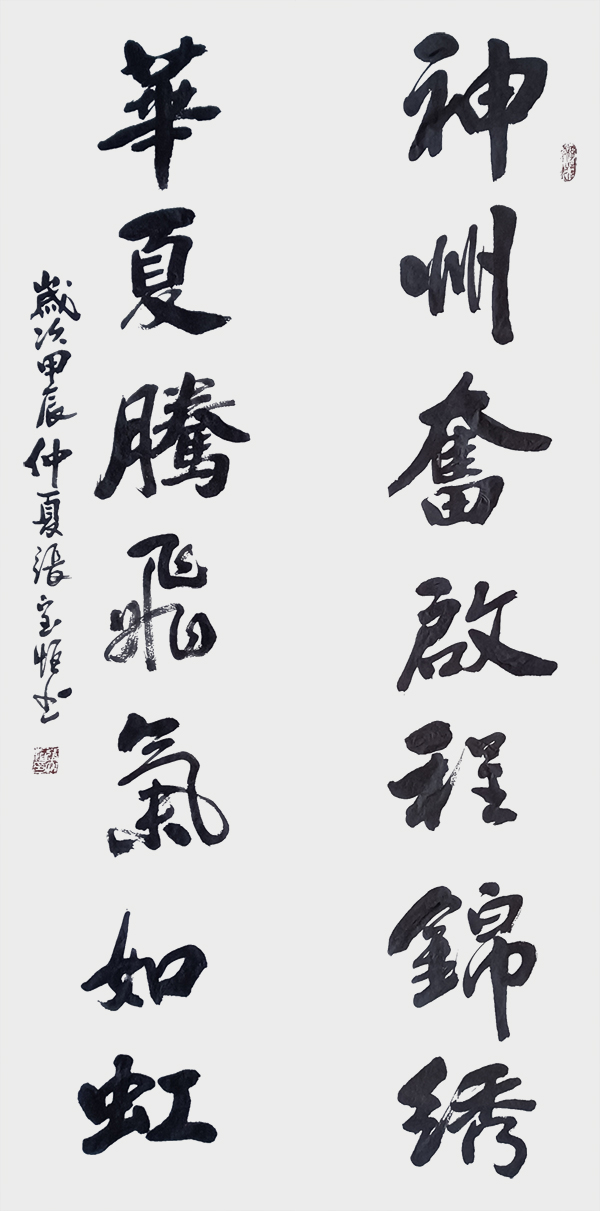 神州奮啟程錦绣
華夏騰飛氣如虹
歲次甲辰仲夏張宝恒书